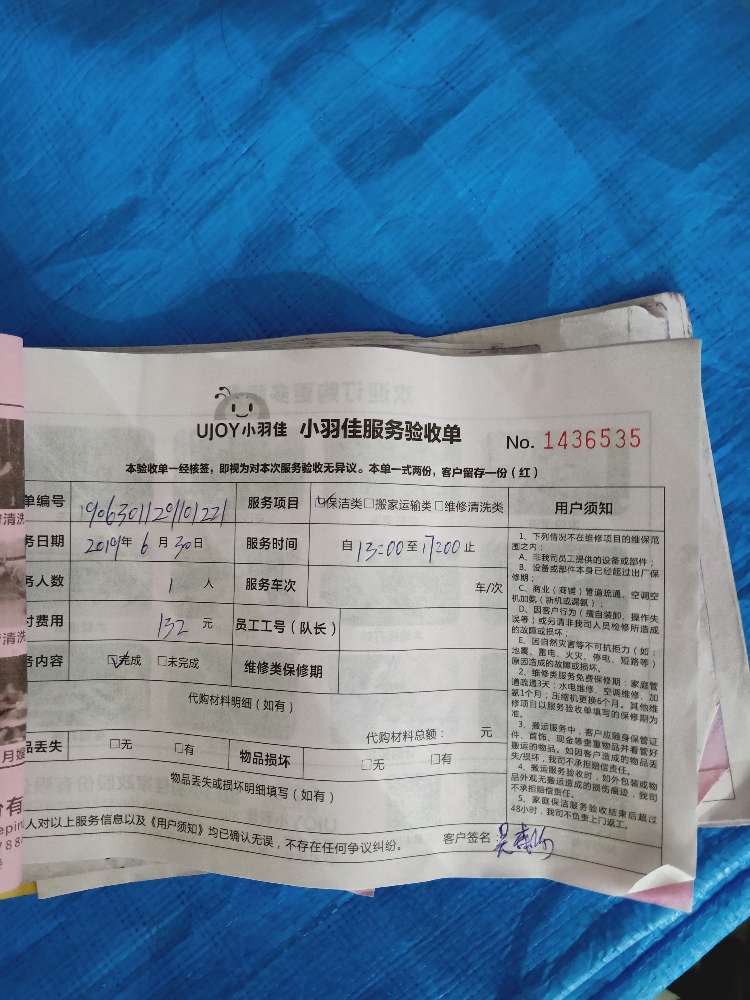 UJOY小羽佳 小羽佳服务验收单 No. 1436535
本验收单一经核签，即视为对本次服务验收无异议。本单一式两份，客户留存一份（红）
单编号 1906301129101221 服务项目 ☑保洁类□搬家运输类□维修清洗类 用户须知
务日期 2019年 6 月 30日 服务时间 自 13:00 至 17:00 止
务人数 1 人 服务车次 车/次
付费用 132 元 员工工号（队长）
务内容 ☑完成 □未完成 维修类保修期
代购材料明细（如有）
代购材料总额： 元
品丢失 □无 □有 物品损坏 □无 □有
物品丢失或损坏明细填写（如有）
人对以上服务信息以及《用户须知》均已确认无误，不存在任何争议纠纷。 客户签名
1、下列情况不在维修项目的维保范
围之内：
A、非我司员工提供的设备或部件；
B、设备或部件本身已经超过出厂保
修期；
C、商业（商铺）管道疏通、空调空
机加氨（新机或漏氨）；
D、因客户行为（擅自装卸、操作失
误等）或另请非我司人员检修所造成
的故障或损坏；
E、因自然灾害等不可抗拒力（如：
地震、雷电、火灾、停电、短路等）
原因造成的故障或损坏。
2、维修类服务免费保修期：家庭管
道疏通3天；水电维修、空调维修、加
氨1个月；压缩机更换6个月。其他维
修项目以服务验收单填写的保修期为
准。
3、搬运服务中，客户应随身保管证
件、首饰、现金等贵重物品并看管好
搬运的物品。如因客户造成的物品丢
失/损坏，我司不承担赔偿责任。
4、搬运服务验收时，如外包装或物
品外观无搬运造成的损伤痕迹，我司
不承担赔偿责任。
5、家庭保洁服务验收结束后超过
48小时，我司不负责上门返工。
清洗
清洗
月嫂